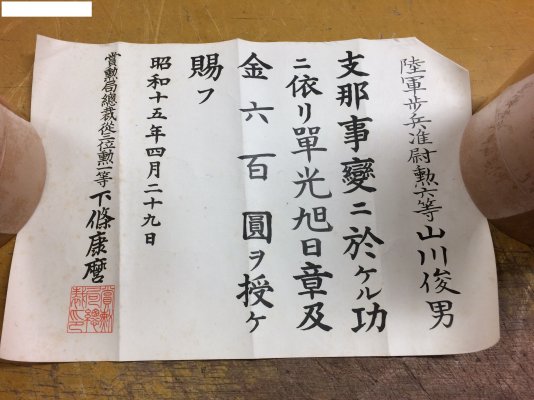 陸軍歩兵准尉勲六等山川俊男
支那事變ニ於ケル功
ニ依リ單光旭日章及
金六百圓ヲ授ケ
賜フ
昭和十五年四月二十九日
賞勲局總裁從三位勲二等下條康麿